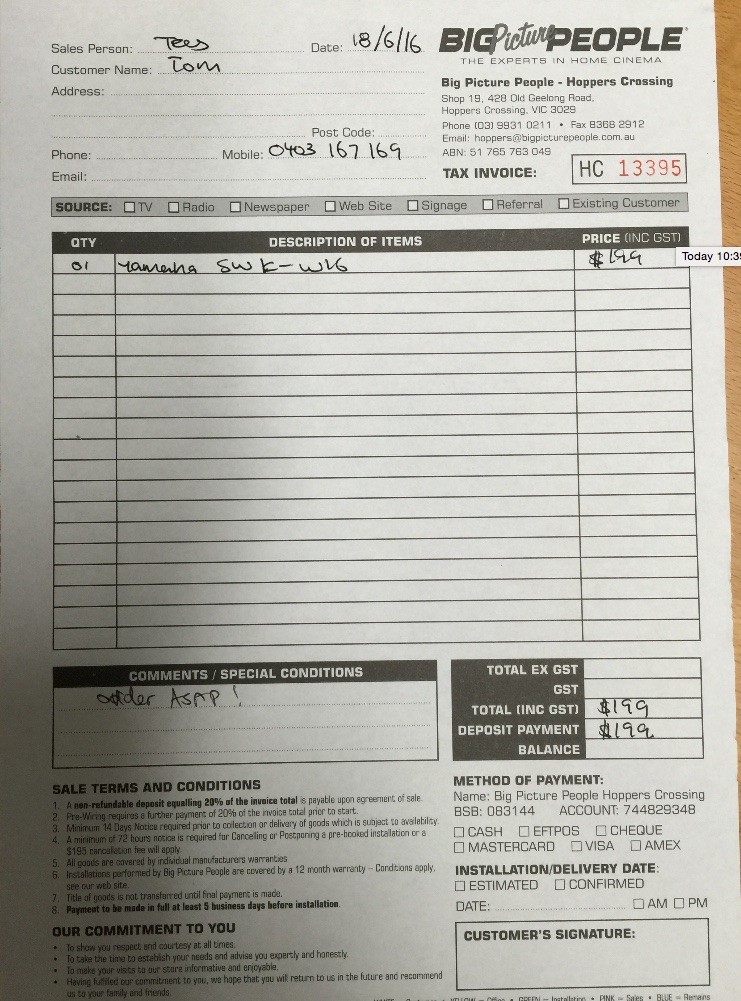 Sales Person: Tees Date: 18/6/16
Customer Name: Tom
Address:
Post Code:
Phone: Mobile: 0403 167 169
Email:
BIG Picture PEOPLE
THE EXPERTS IN HOME CINEMA
Big Picture People - Hoppers Crossing
Shop 19, 428 Old Geelong Road,
Hoppers Crossing, VIC 3029
Phone (03) 9931 0211 • Fax 8368 2912
Email: hoppers@bigpicturepeople.com.au
ABN: 51 765 763 049
TAX INVOICE: HC 13395
SOURCE: TV Radio Newspaper Web Site Signage Referral Existing Customer
QTY DESCRIPTION OF ITEMS PRICE (INC GST)
01 Yamaha SWK-W16 $199
Today 10:39
COMMENTS / SPECIAL CONDITIONS
order ASAP!
TOTAL EX GST
GST
TOTAL (INC GST) $199
DEPOSIT PAYMENT $199
BALANCE
SALE TERMS AND CONDITIONS
1. A non-refundable deposit equalling 20% of the invoice total is payable upon agreement of sale.
2. Pre-Wiring requires a further payment of 20% of the invoice total prior to start.
3. Minimum 14 Days Notice required prior to collection or delivery of goods which is subject to availability.
4. A minimum of 72 hours notice is required for Cancelling or Postponing a pre-booked installation or a
$195 cancellation fee will apply.
5. All goods are covered by individual manufacturers warranties
6. Installations performed by Big Picture People are covered by a 12 month warranty – Conditions apply,
see our web site.
7. Title of goods is not transferred until final payment is made.
8. Payment to be made in full at least 5 business days before installation.
OUR COMMITMENT TO YOU
• To show you respect and courtesy at all times.
• To take the time to establish your needs and advise you expertly and honestly.
• To make your visits to our store informative and enjoyable.
• Having fulfilled our commitment to you, we hope that you will return to us in the future and recommend
us to your family and friends.
METHOD OF PAYMENT:
Name: Big Picture People Hoppers Crossing
BSB: 083144 ACCOUNT: 744829348
CASH EFTPOS CHEQUE
MASTERCARD VISA AMEX
INSTALLATION/DELIVERY DATE:
ESTIMATED CONFIRMED
DATE: AM PM
CUSTOMER'S SIGNATURE:
YELLOW = Office • GREEN = Installation • PINK = Sales • BLUE = Remains